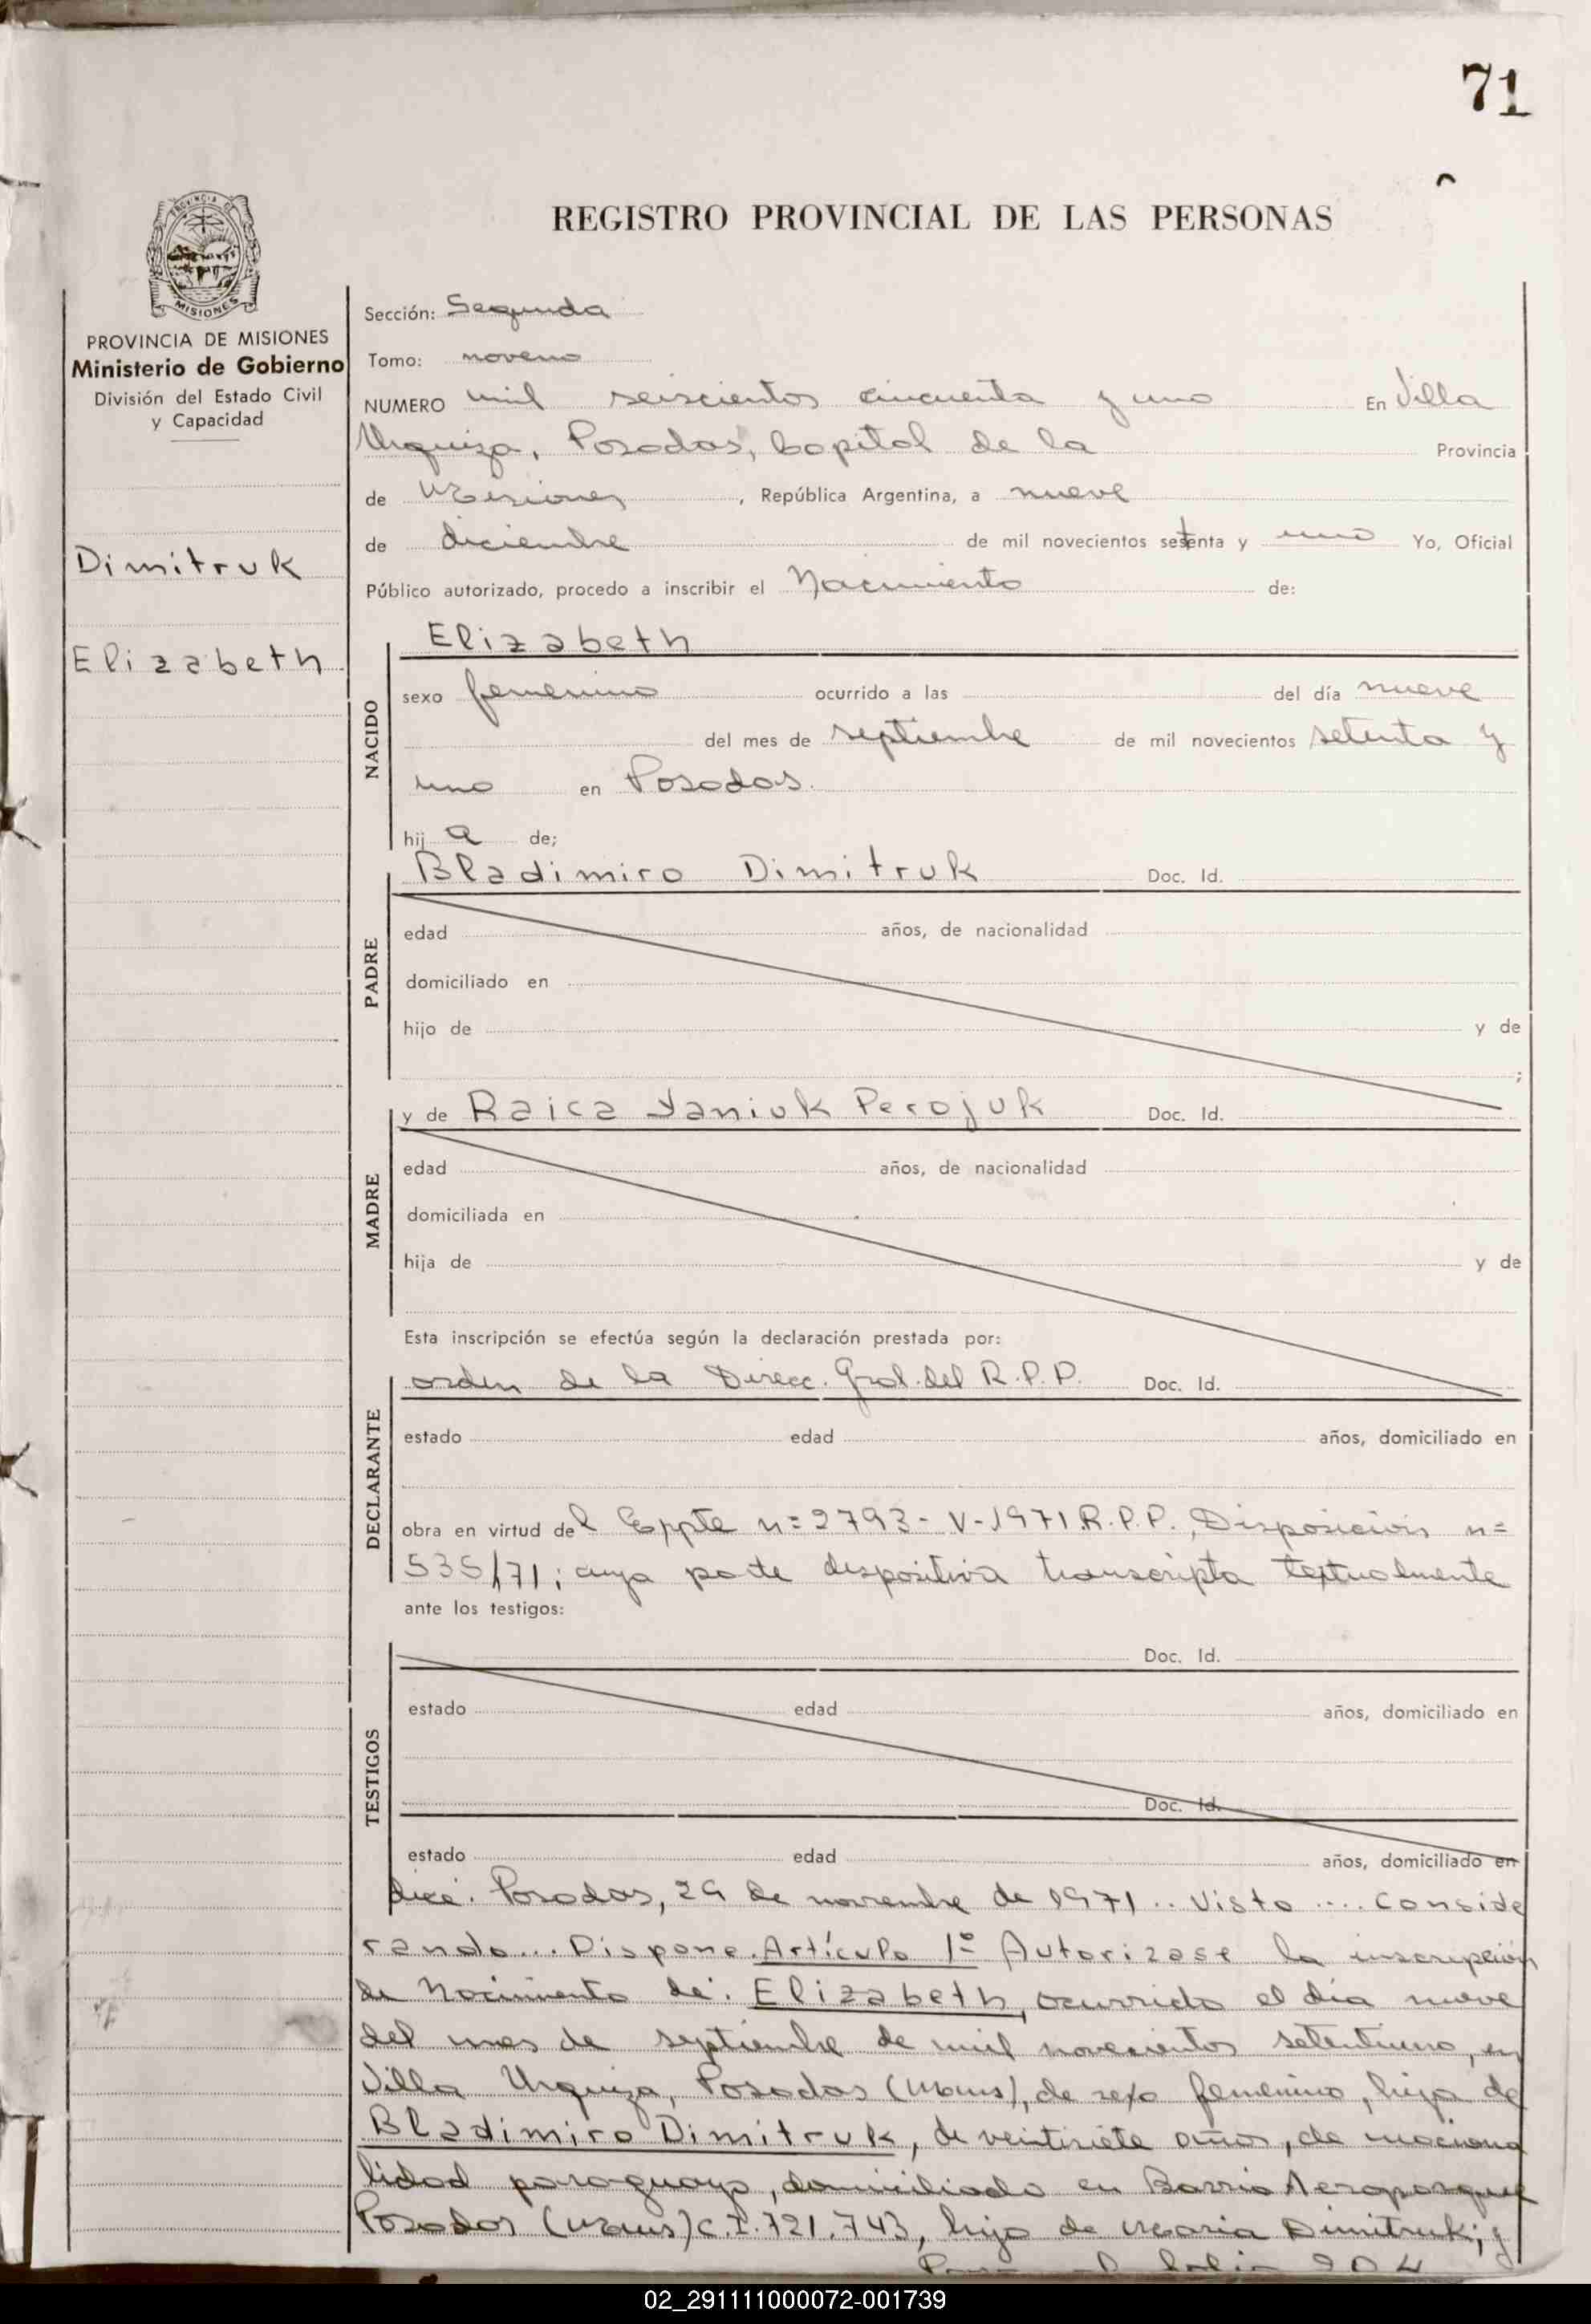 71
REGISTRO PROVINCIAL DE LAS PERSONAS
PROVINCIA DE
MISIONES
PROVINCIA DE MISIONES
Ministerio de Gobierno
División del Estado Civil
y Capacidad
Dimitruk
Elizabeth
Sección: Segunda
Tomo: noveno
NUMERO mil seiscientos cincuenta y uno En Villa
Urquiza, Posadas, Capital de la Provincia
de Misiones, República Argentina, a nueve
de diciembre de mil novecientos setenta y uno Yo, Oficial
Público autorizado, procedo a inscribir el Nacimiento de:
NACIDO
Elizabeth
sexo femenino ocurrido a las del día nueve
del mes de septiembre de mil novecientos setenta y
uno en Posadas.
hija de;
PADRE
Bladimiro Dimitruk Doc. Id.
edad años, de nacionalidad
domiciliado en
hijo de y de
;
MADRE
y de Raica Yaniuk Perojuk Doc. Id.
edad años, de nacionalidad
domiciliada en
hija de y de
Esta inscripción se efectúa según la declaración prestada por:
DECLARANTE
orden de la Direcc. Gral. del R.P.P. Doc. Id.
estado edad años, domiciliado en
obra en virtud del Eppte n=2793-V-1971.R.P.P., Disposición n=
535/71; cuya parte dispositiva transcripta textualmente
ante los testigos:
TESTIGOS
Doc. Id.
estado edad años, domiciliado en
Doc. Id.
estado edad años, domiciliado en
dice: Posadas, 29 de noviembre de 1971.. Visto .... Conside
rando... Dispone. Artículo 1º Autorizase la inscripción
de Nacimiento de: Elizabeth, ocurrido el día nueve
del mes de septiembre de mil novecientos setentiuno, en
Villa Urquiza, Posadas (Mnes), de sexo femenino, hija de
Bladimiro Dimitruk, de veintisiete años, de naciona
lidad paraguayo, domiciliado en Barrio Aeroparque
Posadas (Mnes) C.I. 721.743, hijo de Maria Dimitruk; y
02_291111000072-001739